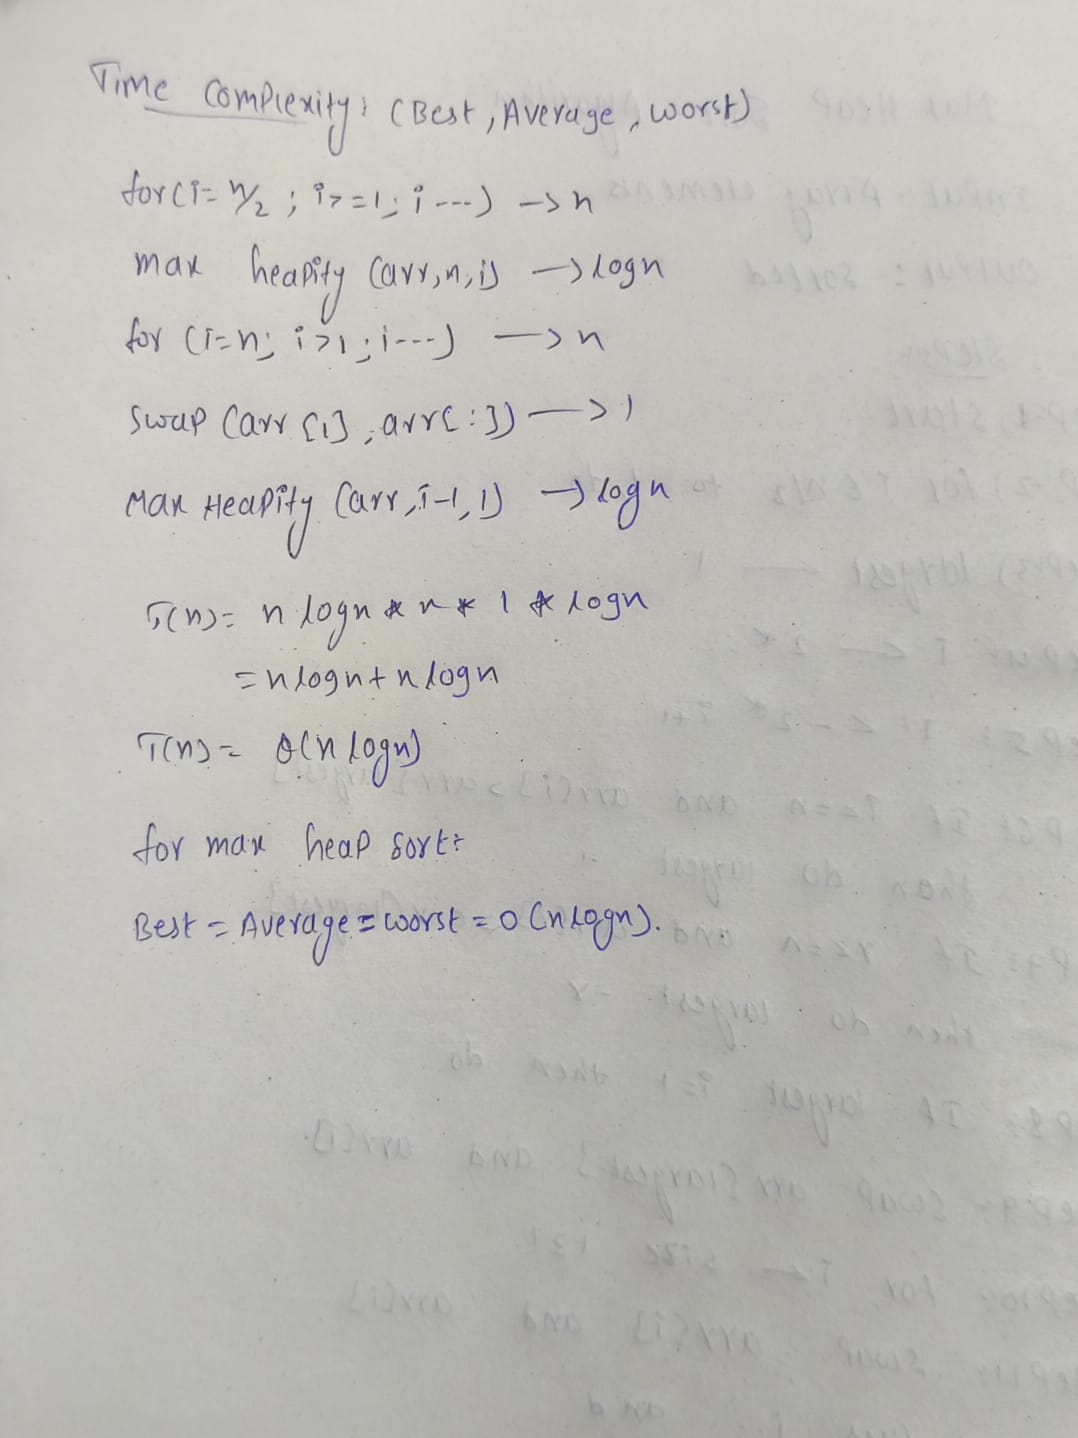 Time Complexity: (Best, Average, worst)
for(i= n/2 ; i>=1; i---) -> n
max heapify (arr,n,i) -> logn
for (i=n; i>1; i---) -> n
swap (arr [1], arr[:]) -> 1
Max Heapify (arr, i-1, 1) -> logn
T(n)= n logn * n * 1 * logn
= nlogn + n logn
T(n) = θ(n logn)
for max heap sort:
Best = Average = worst = O(nlogn).